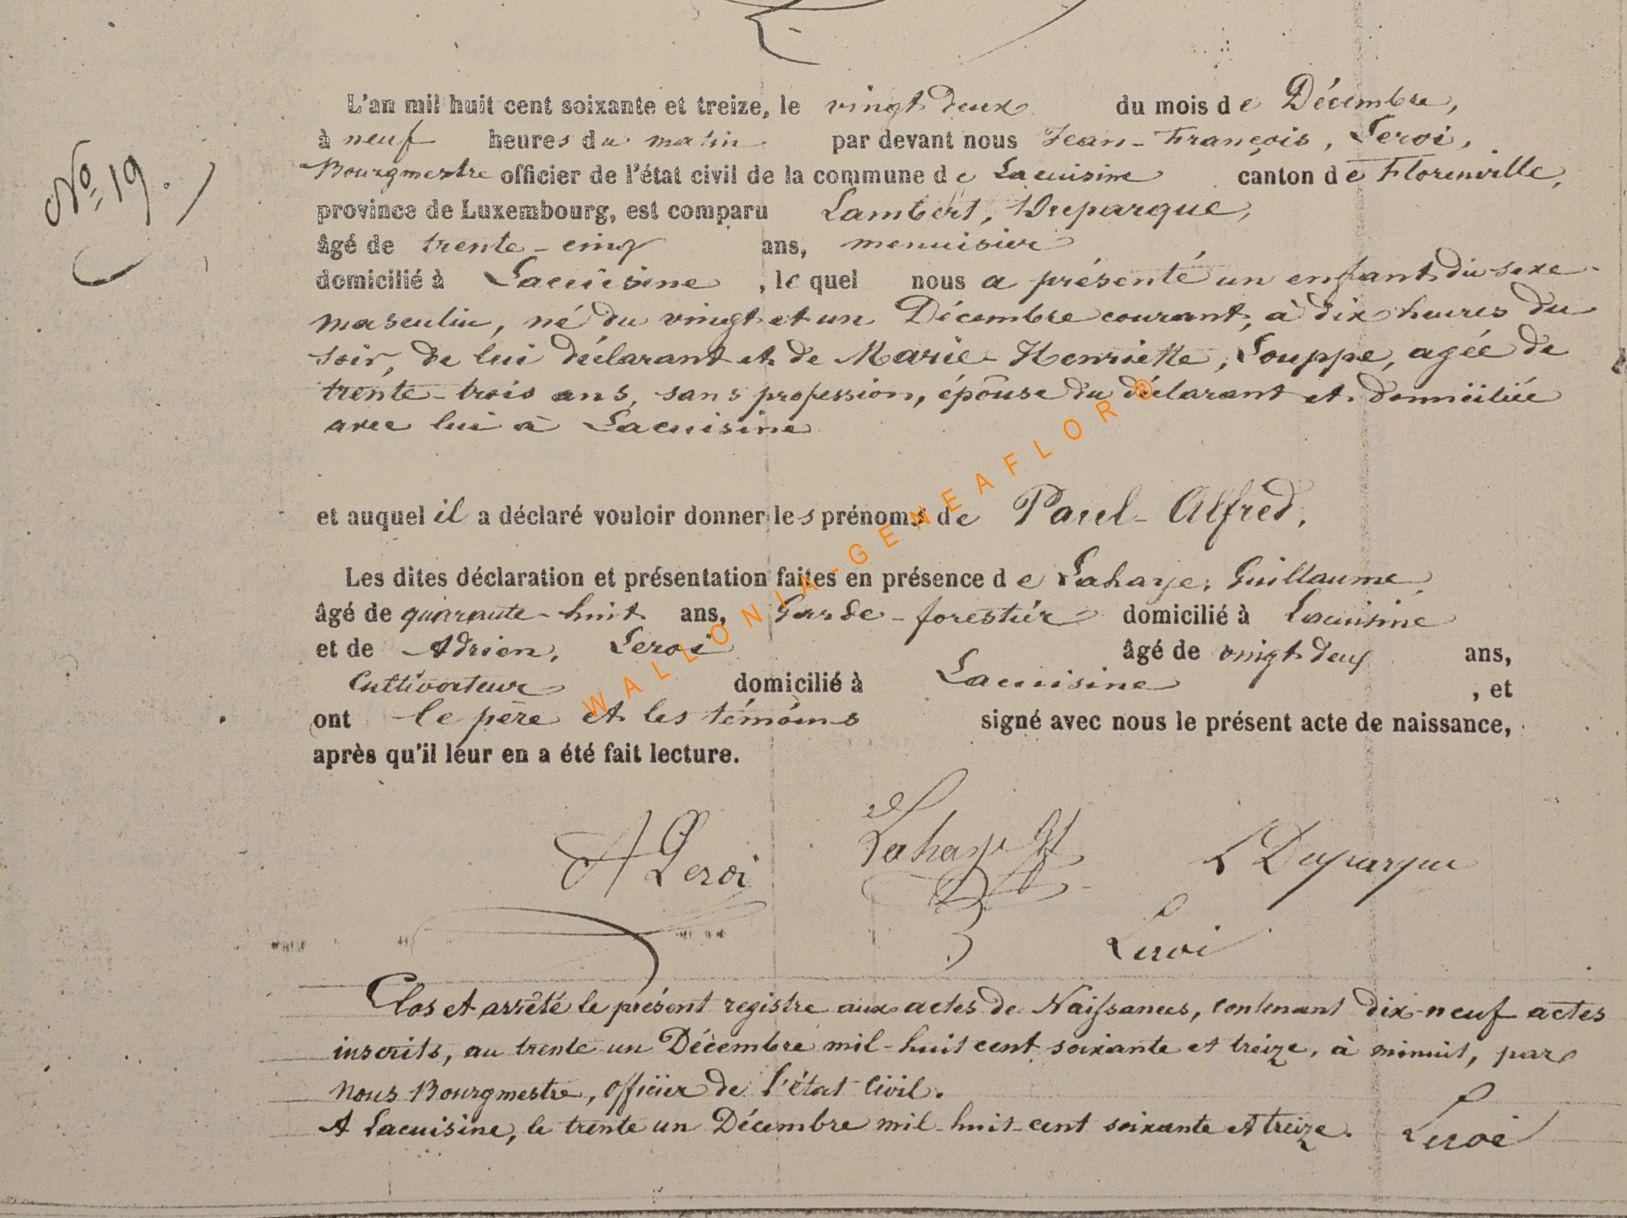 No 19.
L'an mil huit cent soixante et treize, le vingt deux du mois de Décembre,
à neuf heures du matin par devant nous Jean-François, Leroi,
Bourgmestre officier de l'état civil de la commune de Lacuisine canton de Florenville,
province de Luxembourg, est comparu Lambert, Duparque,
âgé de trente-cinq ans, menuisier
domicilié à Lacuisine, lequel nous a présenté un enfant du sexe
masculin, né du vingt et un Décembre courant, à dix heures du
soir, de lui déclarant et de Marie-Henriette, Souppe, agée de
trente-trois ans, sans profession, épouse du déclarant et domiciliée
avec lui à Lacuisine
et auquel il a déclaré vouloir donner les prénoms de Paul-Alfred.
Les dites déclaration et présentation faites en présence de Lahaye, Guillaume,
âgé de quarante-huit ans, Garde-forestier domicilié à Lacuisine
et de Adrien, Leroi âgé de vingt deux ans,
Cultivateur domicilié à Lacuisine, et
ont le père et les témoins signé avec nous le présent acte de naissance,
après qu'il leur en a été fait lecture.
A Leroi Lahaye G L Duparque
Leroi
Clos et arrêté le présent registre aux actes de Naissances, contenant dix-neuf actes
inscrits, au trente un Décembre mil-huit cent soixante et treize, à minuit, par
nous Bourgmestre, officier de l'état civil.
A Lacuisine, le trente un Décembre mil-huit-cent soixante et treize. Leroi
WALLONIA-GENEAFLOR®